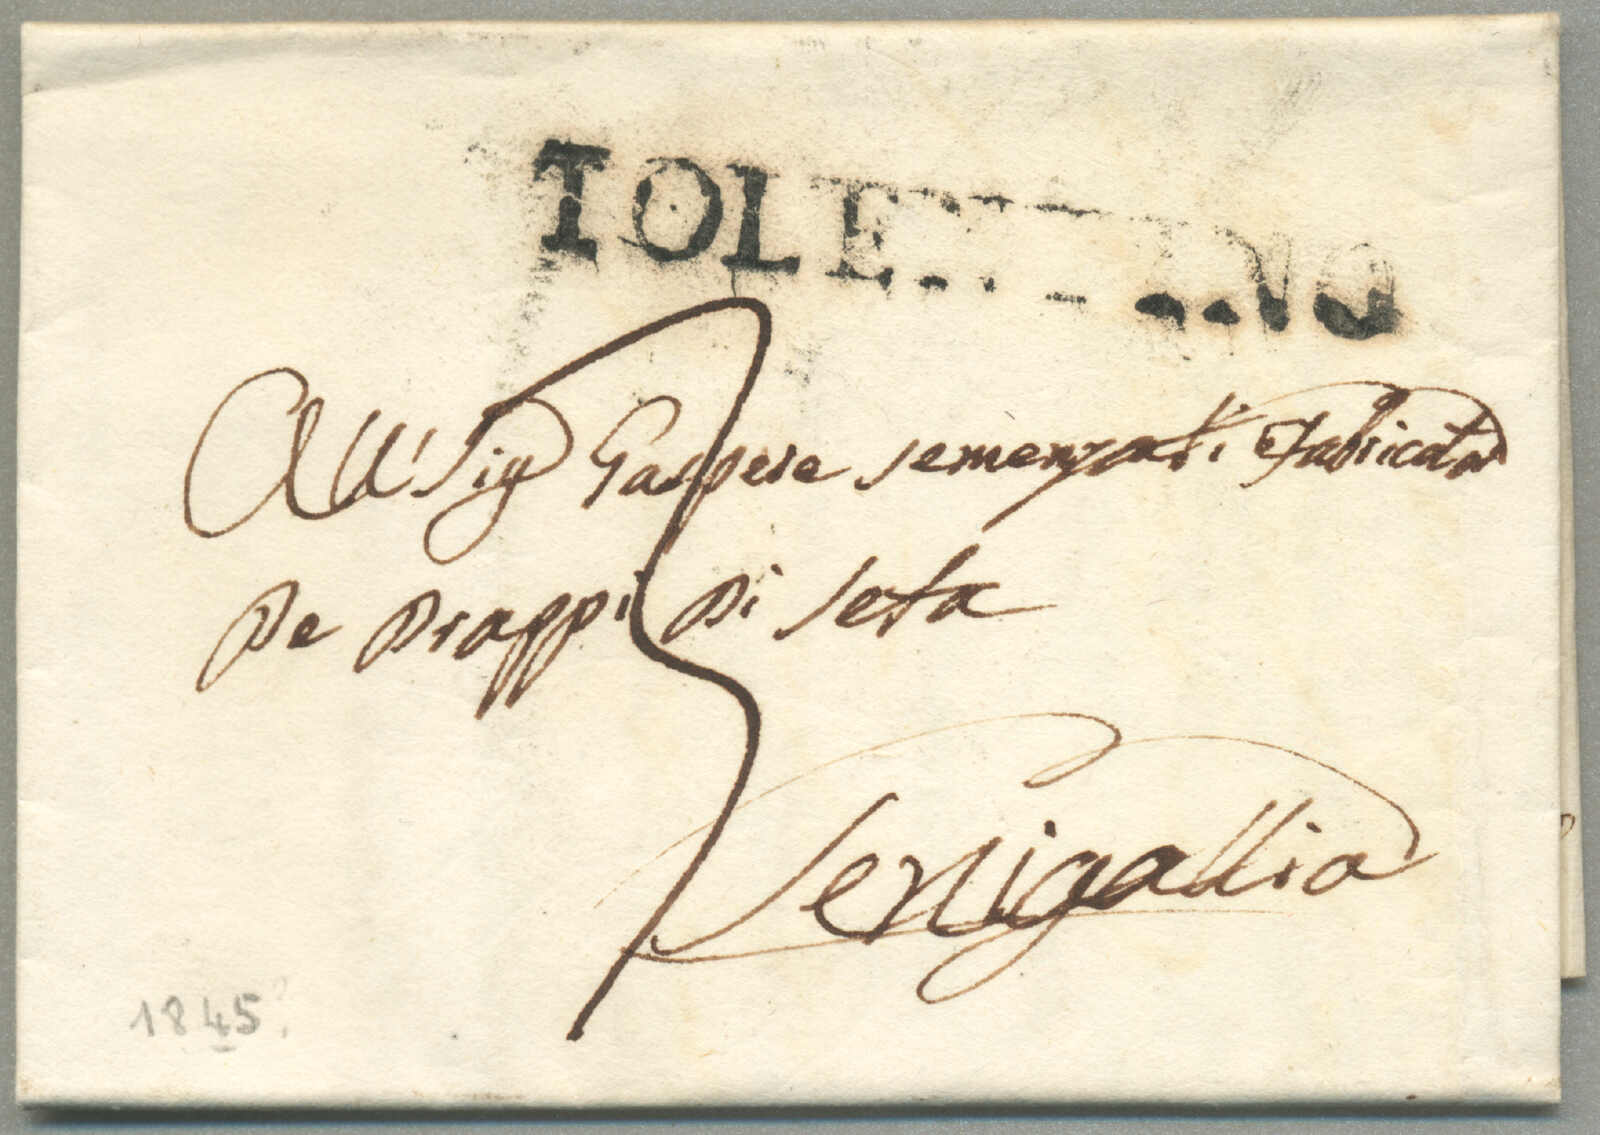 TOLENTINO
All' Sig Gaspere semenzati Fabricator
De Drappi Di Seta
3
Senigallia
1845?